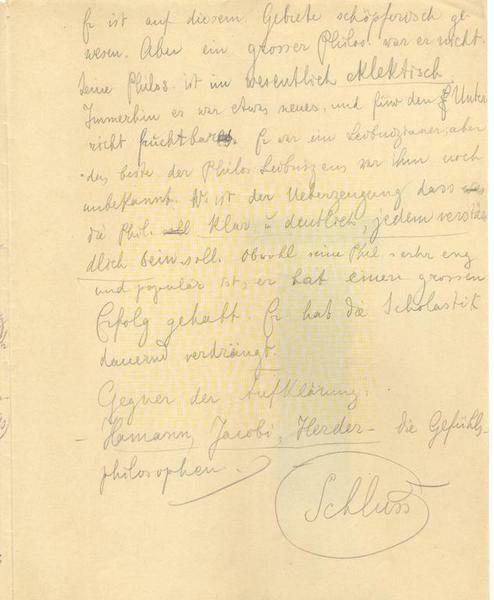 Er ist auf diesem Gebiete schöpferisch ge-
wesen. Aber ein grosser Philos. war er nicht.
Seine Philos. ist im wesentlich eklektisch
Immerhin es war etwas neues, und für den Unter
richt fruchtbar. Er war ein Leibnizianer, aber
das beste der Philos. Leibnizens war ihm noch
unbekannt. W. ist der Ueberzeugung dass
die Phil. klar u deutlich, jedem verstän
dlich sein soll. Obwohl seine Phil. sehr eng
und popular ist, er hat einen grossen
Erfolg gehabt. Er hab die Scholastik
dauernd verdrängt.
Gegner der Aufklärung.
- Hamann, Jacobi, Herder - die Gefühls
philosophen.
Schluss